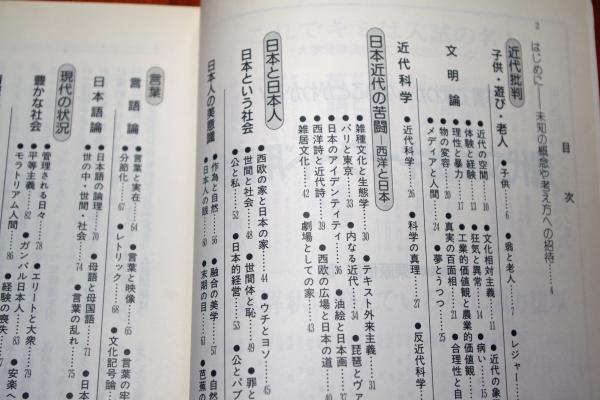 2
目次
はじめに――未知の概念や考え方への招待……4
近代批判
子供・遊び・老人
●子供……6 ●翁と老人……7 ●レジャー
文明論
●近代の空間……10 ●文化相対主義……11 ●近代の象
●体験と経験……13 ●狂気と異常……14 ●病い……15
●理性と暴力……17 ●工業的価値観と農業的価値観
●物の変容……20 ●真実の百面相……21 ●合理性と自
●メディアと人間……24 ●夢とうつつ……25
近代科学
●近代科学……26 ●科学の真理……27 ●反近代科学
日本近代の苦闘 西洋と日本
●雑種文化と生態学……30 ●テキスト外来主義……31
●パリと東京……33 ●内なる近代……34 ●琵琶とヴァ
●日本のアイデンティティ……36 ●油絵と日本画……37
●西洋詩と近代詩……39 ●西欧の広場と日本の道……40
●雑居文化……42 ●劇場としての家……43
日本と日本人
日本という社会
●西欧の家と日本の家……44 ●ウチとヨソ……45
●世間と社会……48 ●世間体と恥……49 ●罪と
●公と私……52 ●日本的経営……53 ●公とパブ
日本人の美意識
●作為と自然……56 ●融合の美学……57 ●自然
●日本人の眼……60 ●末期の目……61 ●芭蕉の
言葉
言語論
●言葉と実在……64 ●言葉と映像……65 ●言葉の牢
●分節化……67 ●レトリック……68 ●文化記号論
日本語論
●日本語の論理……70 ●母語と母国語……71 ●日本
●世の中・世間・社会……74 ●言葉の乱れ……75
現代の状況
豊かな社会
●管理される日々……78 ●エリートと大衆……79
●平等主義……82 ●ガンバル日本人……83 ●安楽へ
●モラトリアム人間……86 ●経験の喪失……87